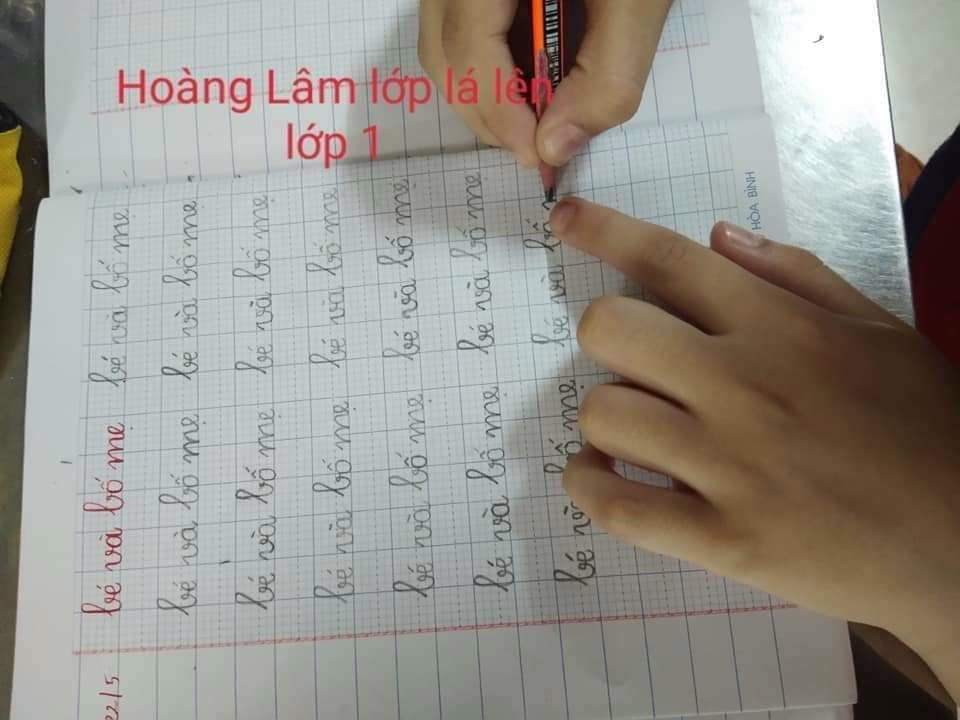 Hoàng Lâm lớp lá lên
lớp 1
22/5
bé và bố mẹ bé và bố mẹ
bé và bố mẹ bé và bố mẹ
bé và bố mẹ bé và bố mẹ
bé và bố mẹ bé và bố mẹ
bé và bố mẹ bé và bố mẹ
bé và bố mẹ bé và bố mẹ
bé và bố mẹ bé và bố
HÒA BÌNH